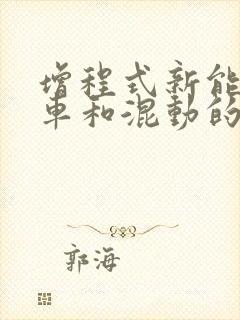 增程式新能
车和混动的
郭海